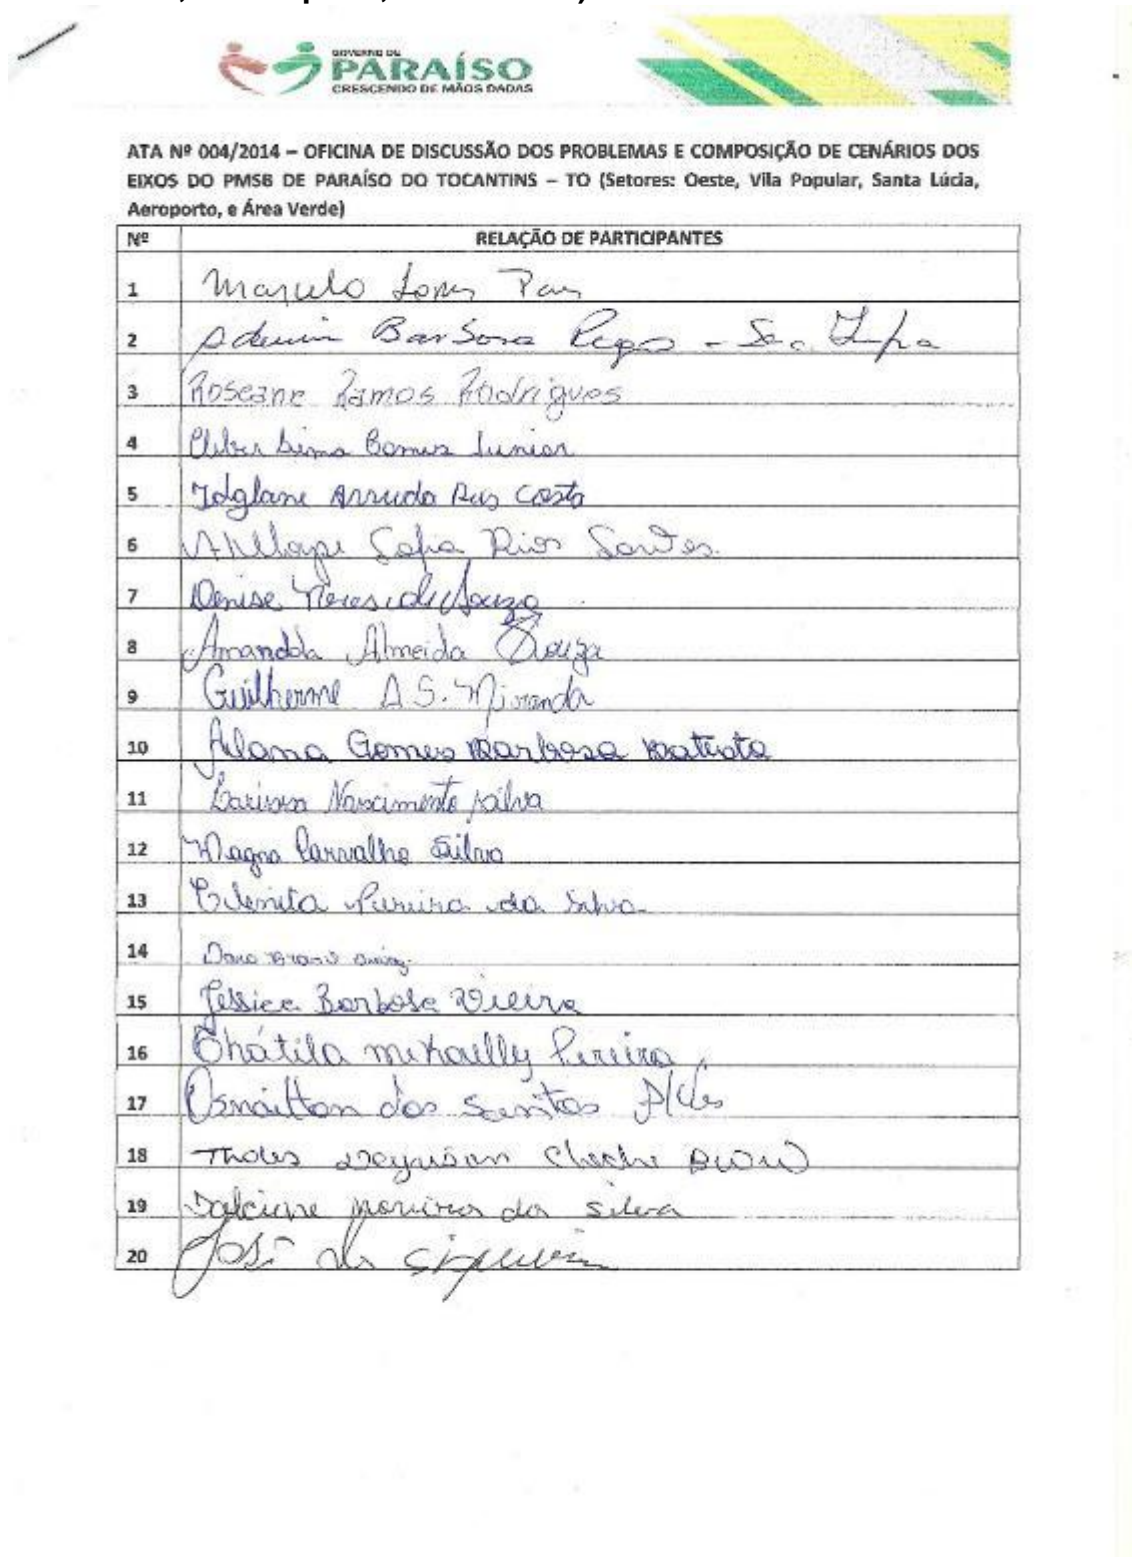 GOVERNO DE
PARAÍSO
CRESCENDO DE MÃOS DADAS
ATA Nº 004/2014 – OFICINA DE DISCUSSÃO DOS PROBLEMAS E COMPOSIÇÃO DE CENÁRIOS DOS
EIXOS DO PMSB DE PARAÍSO DO TOCANTINS – TO (Setores: Oeste, Vila Popular, Santa Lúcia,
Aeroporto, e Área Verde)
Nº RELAÇÃO DE PARTICIPANTES
1 Marcelo
2 Barbosa - Sec. Infra
3 Roseane Ramos Rodrigues
4 Cleber Lima Junior
5 Arruda Costa
6 Rios
7 Denise Neres de Souza
8 Amanda Almeida Souza
9 Guilherme A S. Miranda
10 Gomes Barbosa Batista
11 Larissa Nascimento Silva
12 Magna Carvalho Silva
13 Pereira da Silva
14
15 Jessica Barbosa Vieira
16 Thátila Pereira
17 Osmailton dos Santos
18
19 da Silva
20 José